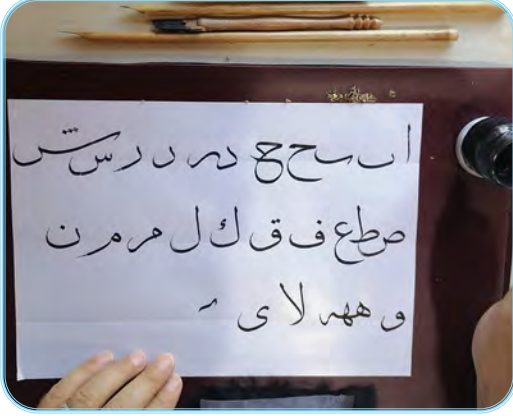 ا ب ح ج د ر د ر س ش
ص ط ع ف ق ك ل م م ن
و ههه لا ى